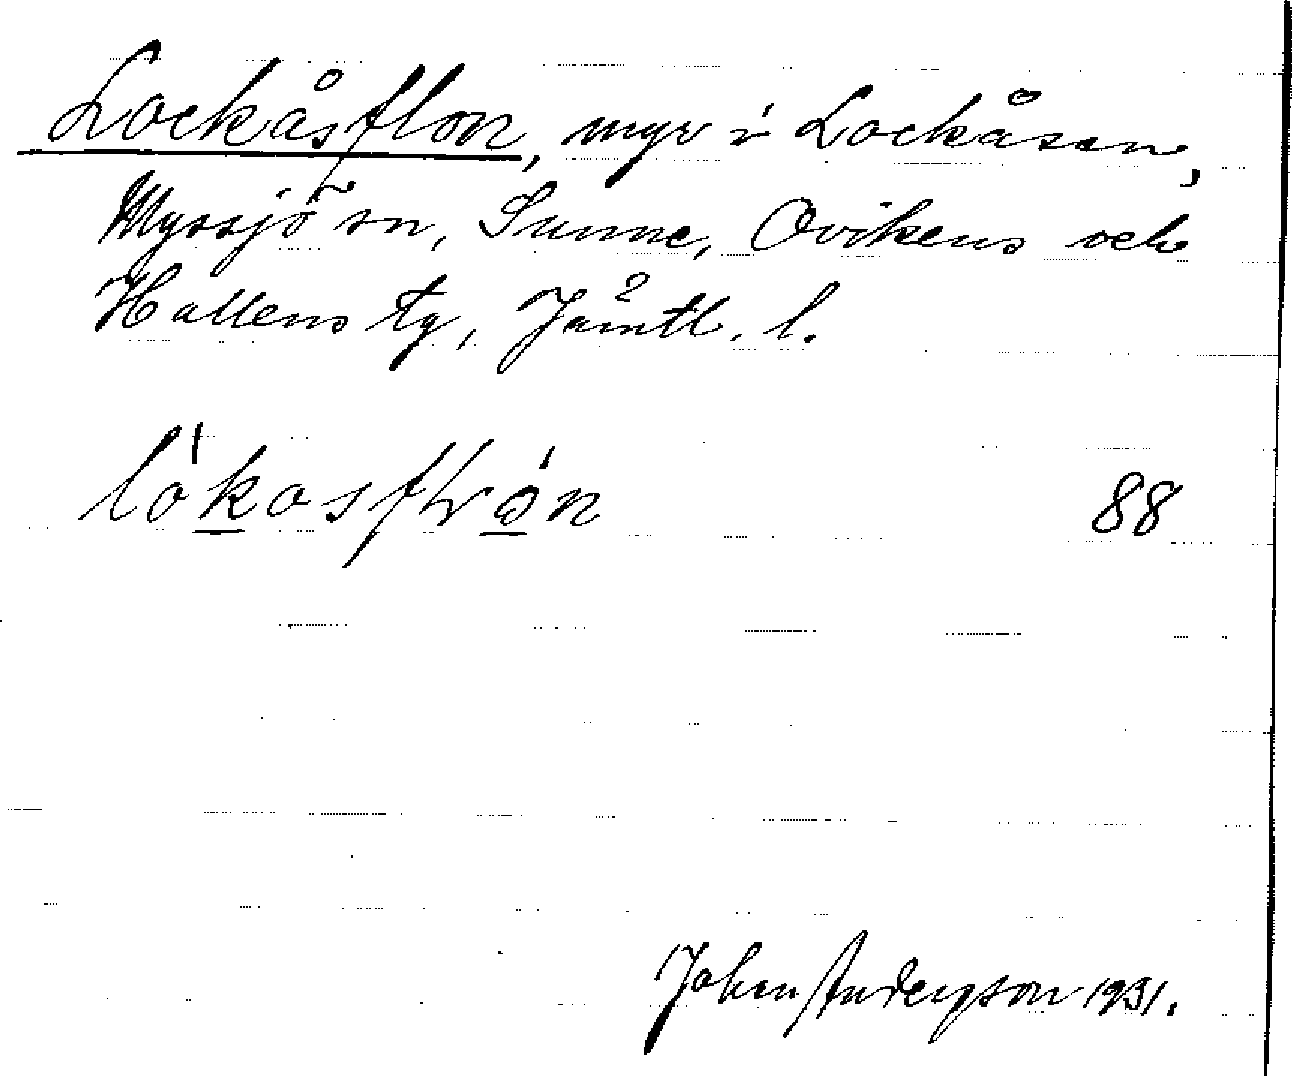 Lockåsflon, myr i Lockåsen,
Myssjö sn, Sunne, Ovikens och
Hallens tg, Jämtl. l.
lòkasflrón 88
Johan Anderson 1931.